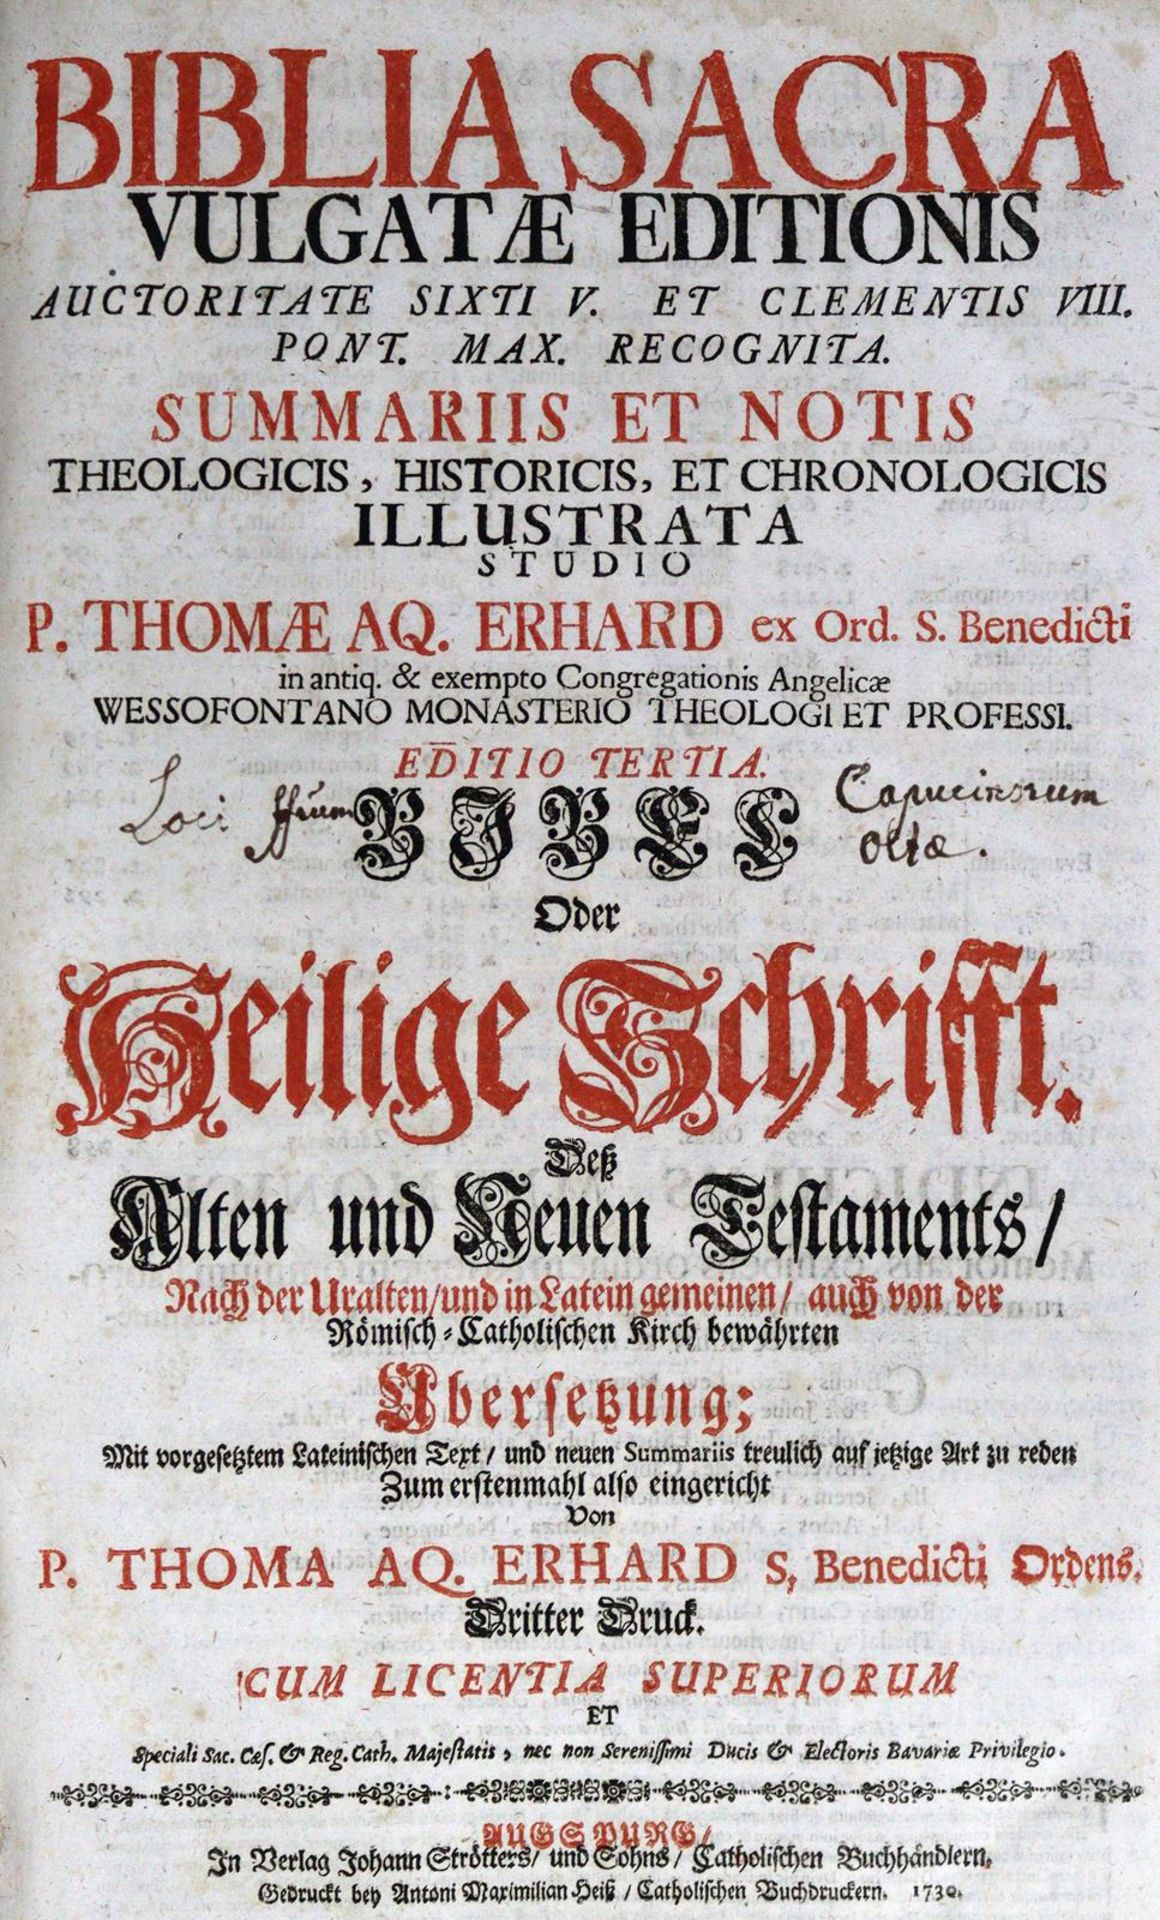 BIBLIA SACRA
VULGATÆ EDITIONIS
AUCTORITATE SIXTI V. ET CLEMENTIS VIII.
PONT. MAX. RECOGNITA.
SUMMARIIS ET NOTIS
THEOLOGICIS, HISTORICIS, ET CHRONOLOGICIS
ILLUSTRATA
STUDIO
P. THOMÆ AQ. ERHARD ex Ord. S. Benedicti
in antiq. & exempto Congregationis Angelicæ
WESSOFONTANO MONASTERIO THEOLOGI ET PROFESSI.
EDITIO TERTIA.
Loci Capucinorum
BIBEL
Oder
Heilige Schrifft.
Deß
Alten und Neuen Testaments/
Nach der Uralten/ und in Latein gemeinen/ auch von der
Römisch-Catholischen Kirch bewährten
Übersetzung;
Mit vorgesetztem Lateinischen Text/ und neuen Summariis treulich auf jetzige Art zu reden
Zum erstenmahl also eingericht
Von
P. THOMA AQ. ERHARD S. Benedicti Ordens.
Dritter Druck.
CUM LICENTIA SUPERIORUM
ET
Speciali Sac. Cæs. & Reg. Cath. Majestatis, nec non Serenissimi Ducis & Electoris Bavariæ Privilegio.
AUGSPURG/
In Verlag Johann Strötters/ und Sohns/ Catholischen Buchhändlern.
Gedruckt bey Antoni Maximilian Heiß/ Catholischen Buchdruckern. 1730.